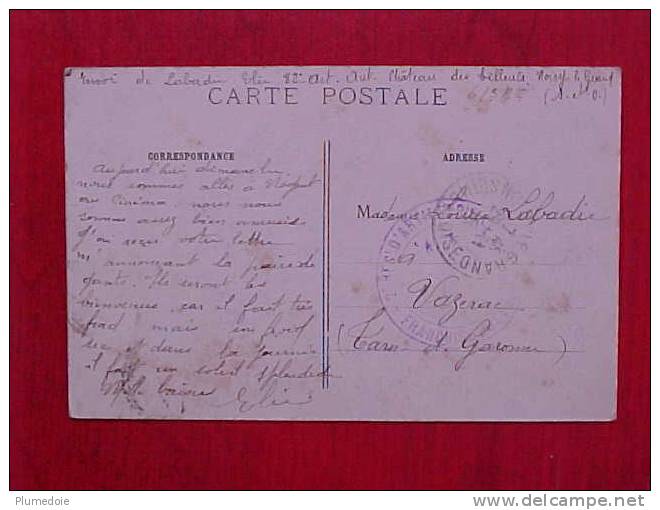 Envoi de Labadie Elie 82e Art. Aut. Château des Noisy le Grand
CARTE POSTALE
(S. et O.)
CORRESPONDANCE
ADRESSE
Aujourd'hui dimanche
nous sommes allés à
au Cinéma. nous nous
sommes assez bien amusés
J'ai reçu votre lettre
m'annonçant la paire de
gants. Ils seront les
bienvenus car il fait très
froid mais un froid
sec et dans la journée
il fait un soleil splendide
Mille baisers Elie
Madame Louise Labadie
à
Vazerac
(Tarn et Garonne)
NOISY-LE-GRAND SEINE
D'AR
Plumedoie
www.delcampe.net